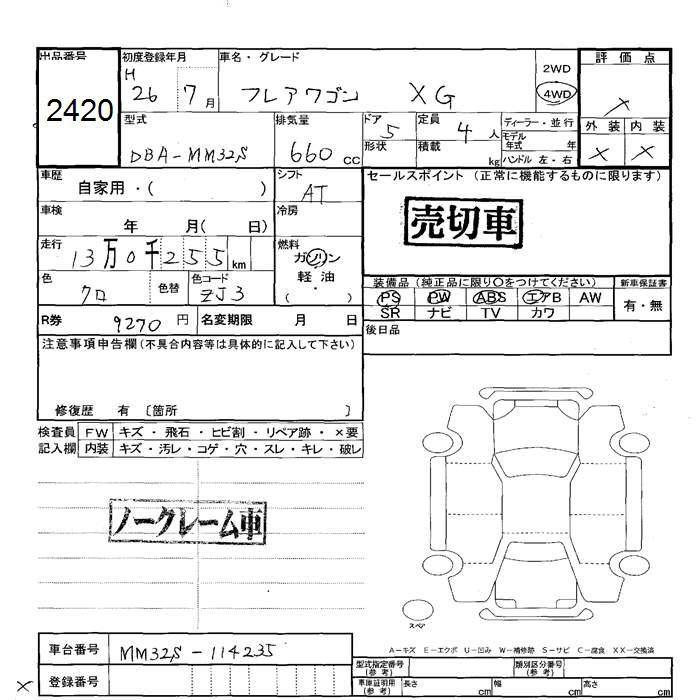 出品番号 初度登録年月 車名・グレード 評価点
2420 H 26 7月 フレアワゴン XG 2WD 4WD ×
型式 排気量 ドア 定員 ディーラー・並行 外装 内装
DBA-MM32S 660 cc 5 4人 モデル年式 年 × ×
形状 積載 kg ハンドル 左・右
車歴 自家用・( ) シフト AT セールスポイント (正常に機能するものに限ります)
車検 年 月( 日) 冷房
売切車
走行 13万0千255km 燃料 ガソリン
軽油
( )
色 クロ 色替 色コード ZJ3
装備品 (純正品に限り〇をつけてください) 新車保証書
PS PW ABS エアB AW 有・無
SR ナビ TV カワ
R券 9270円 名変期限 月 日 後日品
注意事項申告欄(不具合内容等は具体的に記入して下さい)
修復歴 有 〔箇所 〕
検査員 FW キズ・飛石・ヒビ割・リペア跡・×要
記入欄 内装 キズ・汚レ・コゲ・穴・スレ・キレ・破レ
ノークレーム車
スペア
A-キズ E-エクボ U-凹み W-補修跡 S-サビ C-腐食 XX-交換済
車台番号 MM32S-114235 型式指定番号(参考) 類別区分番号(参考)
× 登録番号 車庫証明用(参考) 長さ cm 幅 cm 高さ cm